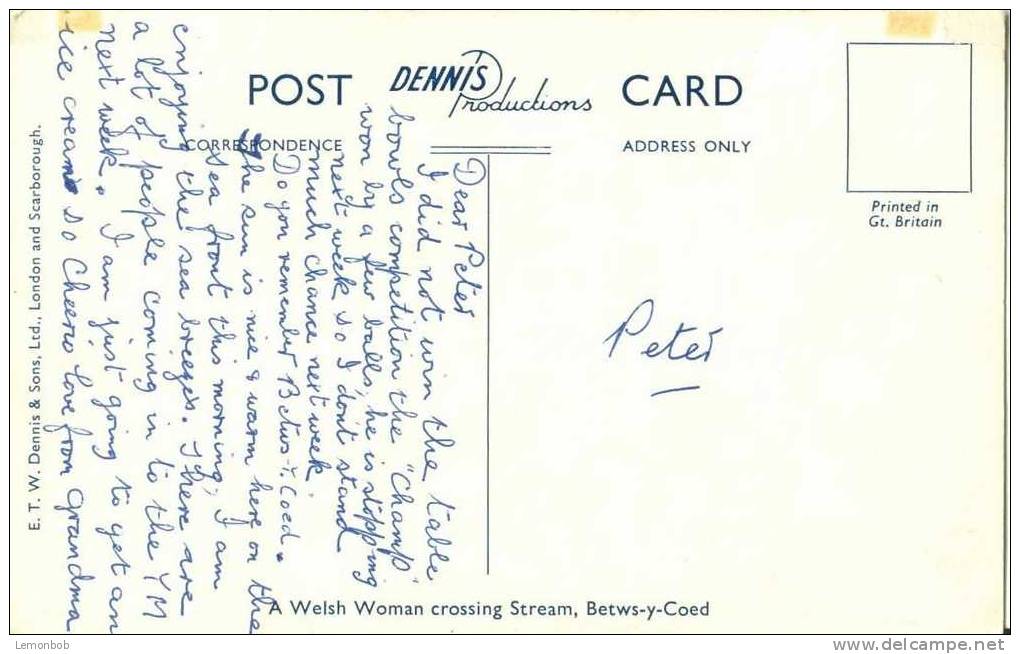 POST DENNIS Productions CARD
CORRESPONDENCE
ADDRESS ONLY
Printed in
Gt. Britain
Dear Peter
I did not win the table
bowls competition the "Champ"
won by a few balls, he is stopping
next week so I don't stand
much chance next week.
Do you remember Betws-Y-Coed.
The sun is nice & warm here on the
sea front this morning, I am
enjoying the sea breezes. There are
a lot of people coming in to the YM
next week. I am just going to get an
ice cream so Cheerio love from Grandma
Peter
E. T. W. Dennis & Sons, Ltd., London and Scarborough.
A Welsh Woman crossing Stream, Betws-y-Coed
Lemonbob
delcampe.net